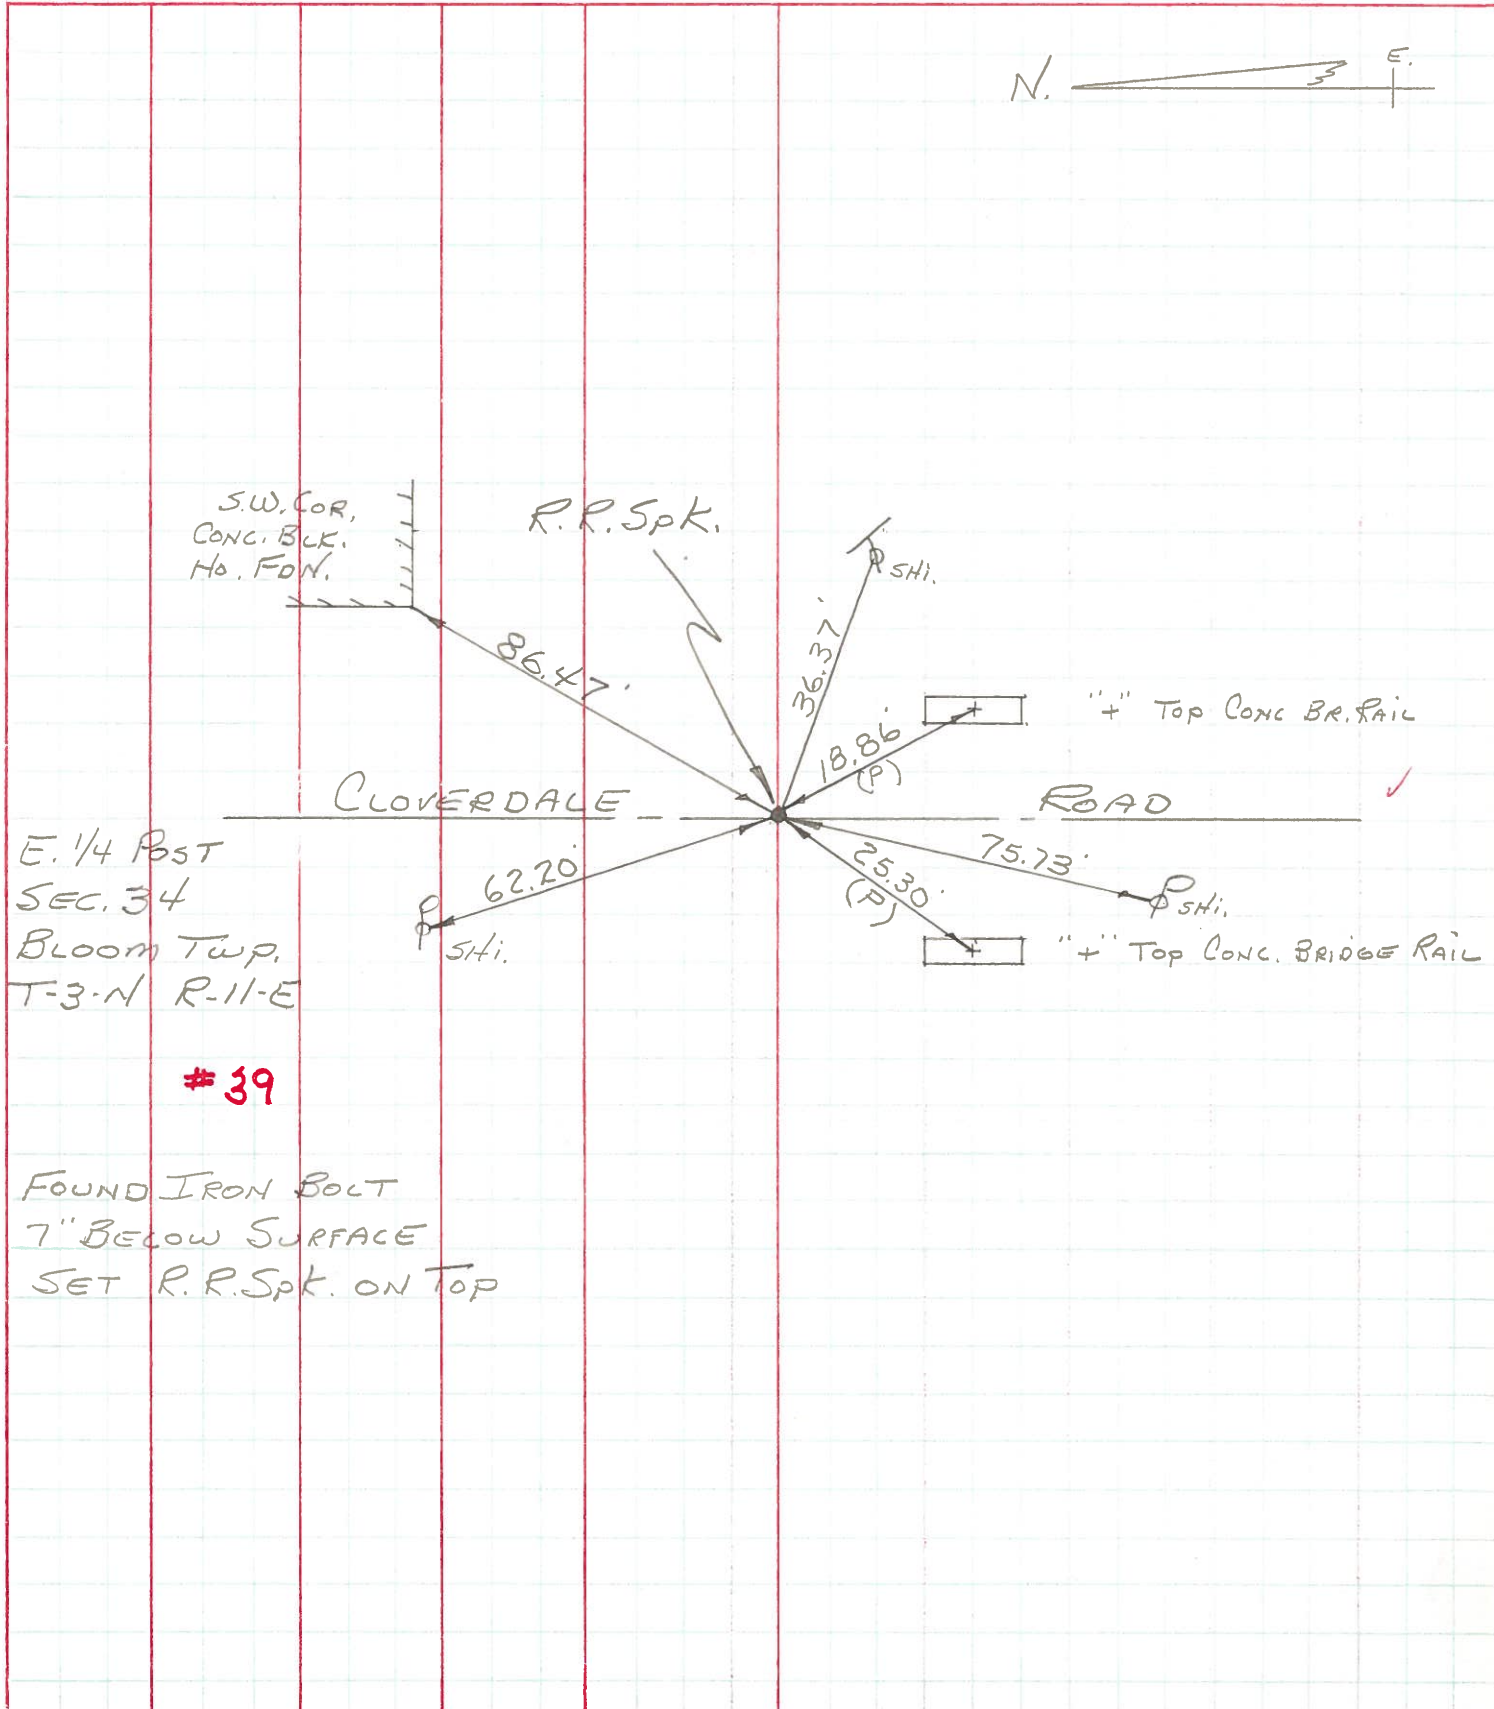 N.
E.
S.W. COR,
CONC. BLK.
HO. FDN.
R.R. SPK.
SHI.
86.47'
36.37'
"+" TOP CONC BR. RAIL
18.86'
(P)
CLOVERDALE ROAD
E. 1/4 POST
SEC. 34
BLOOM TWP.
T-3-N R-11-E
62.20'
SHI.
25.30'
(P)
75.73'
SHI.
"+" TOP CONC. BRIDGE RAIL
#39
FOUND IRON BOLT
7" BELOW SURFACE
SET R.R. SPK. ON TOP